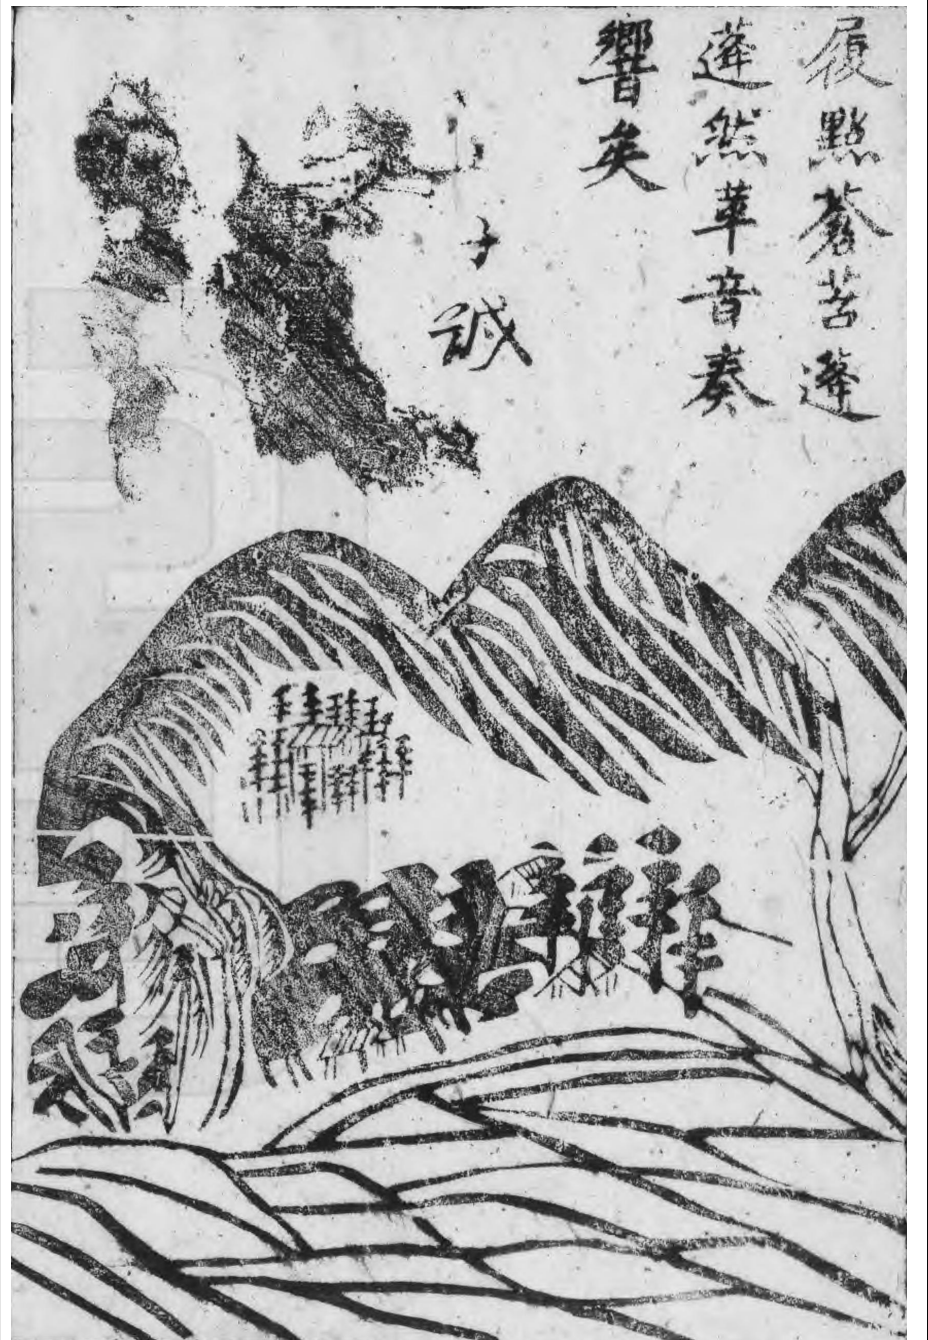 履點蒼苔蓬
蓬然革音奏
響矣
子誠